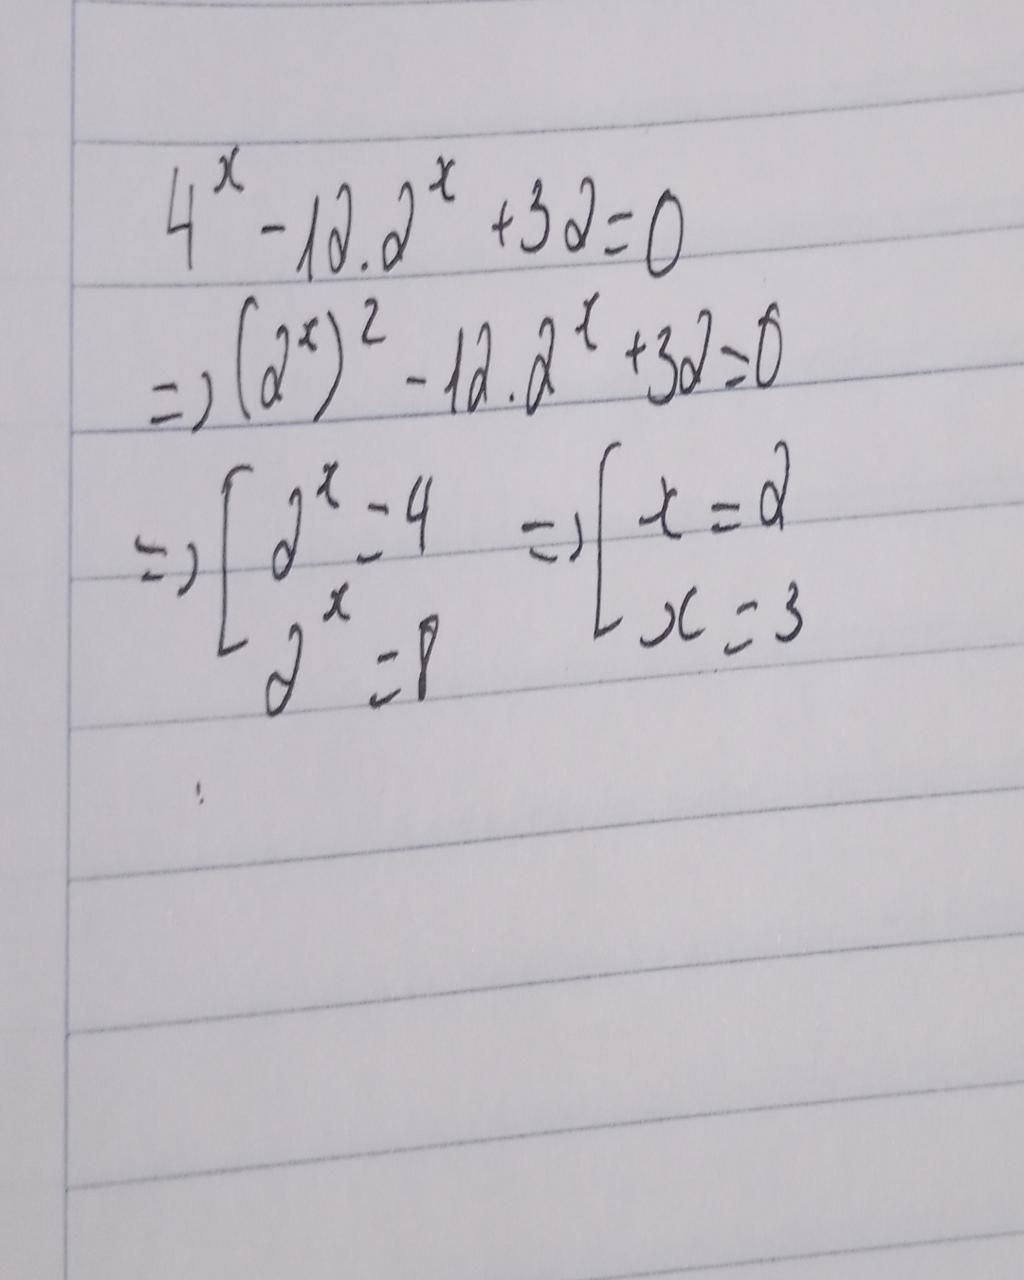 4^x - 12.2^x + 32 = 0
=> (2^x)^2 - 12.2^x + 32 = 0
=> [ 2^x = 4 => [ x = 2
2^x = 8 x = 3